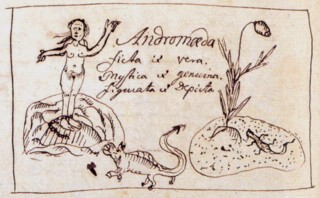 Andromeda
ficta et vera,
mystica et genuina,
figurata et depicta.